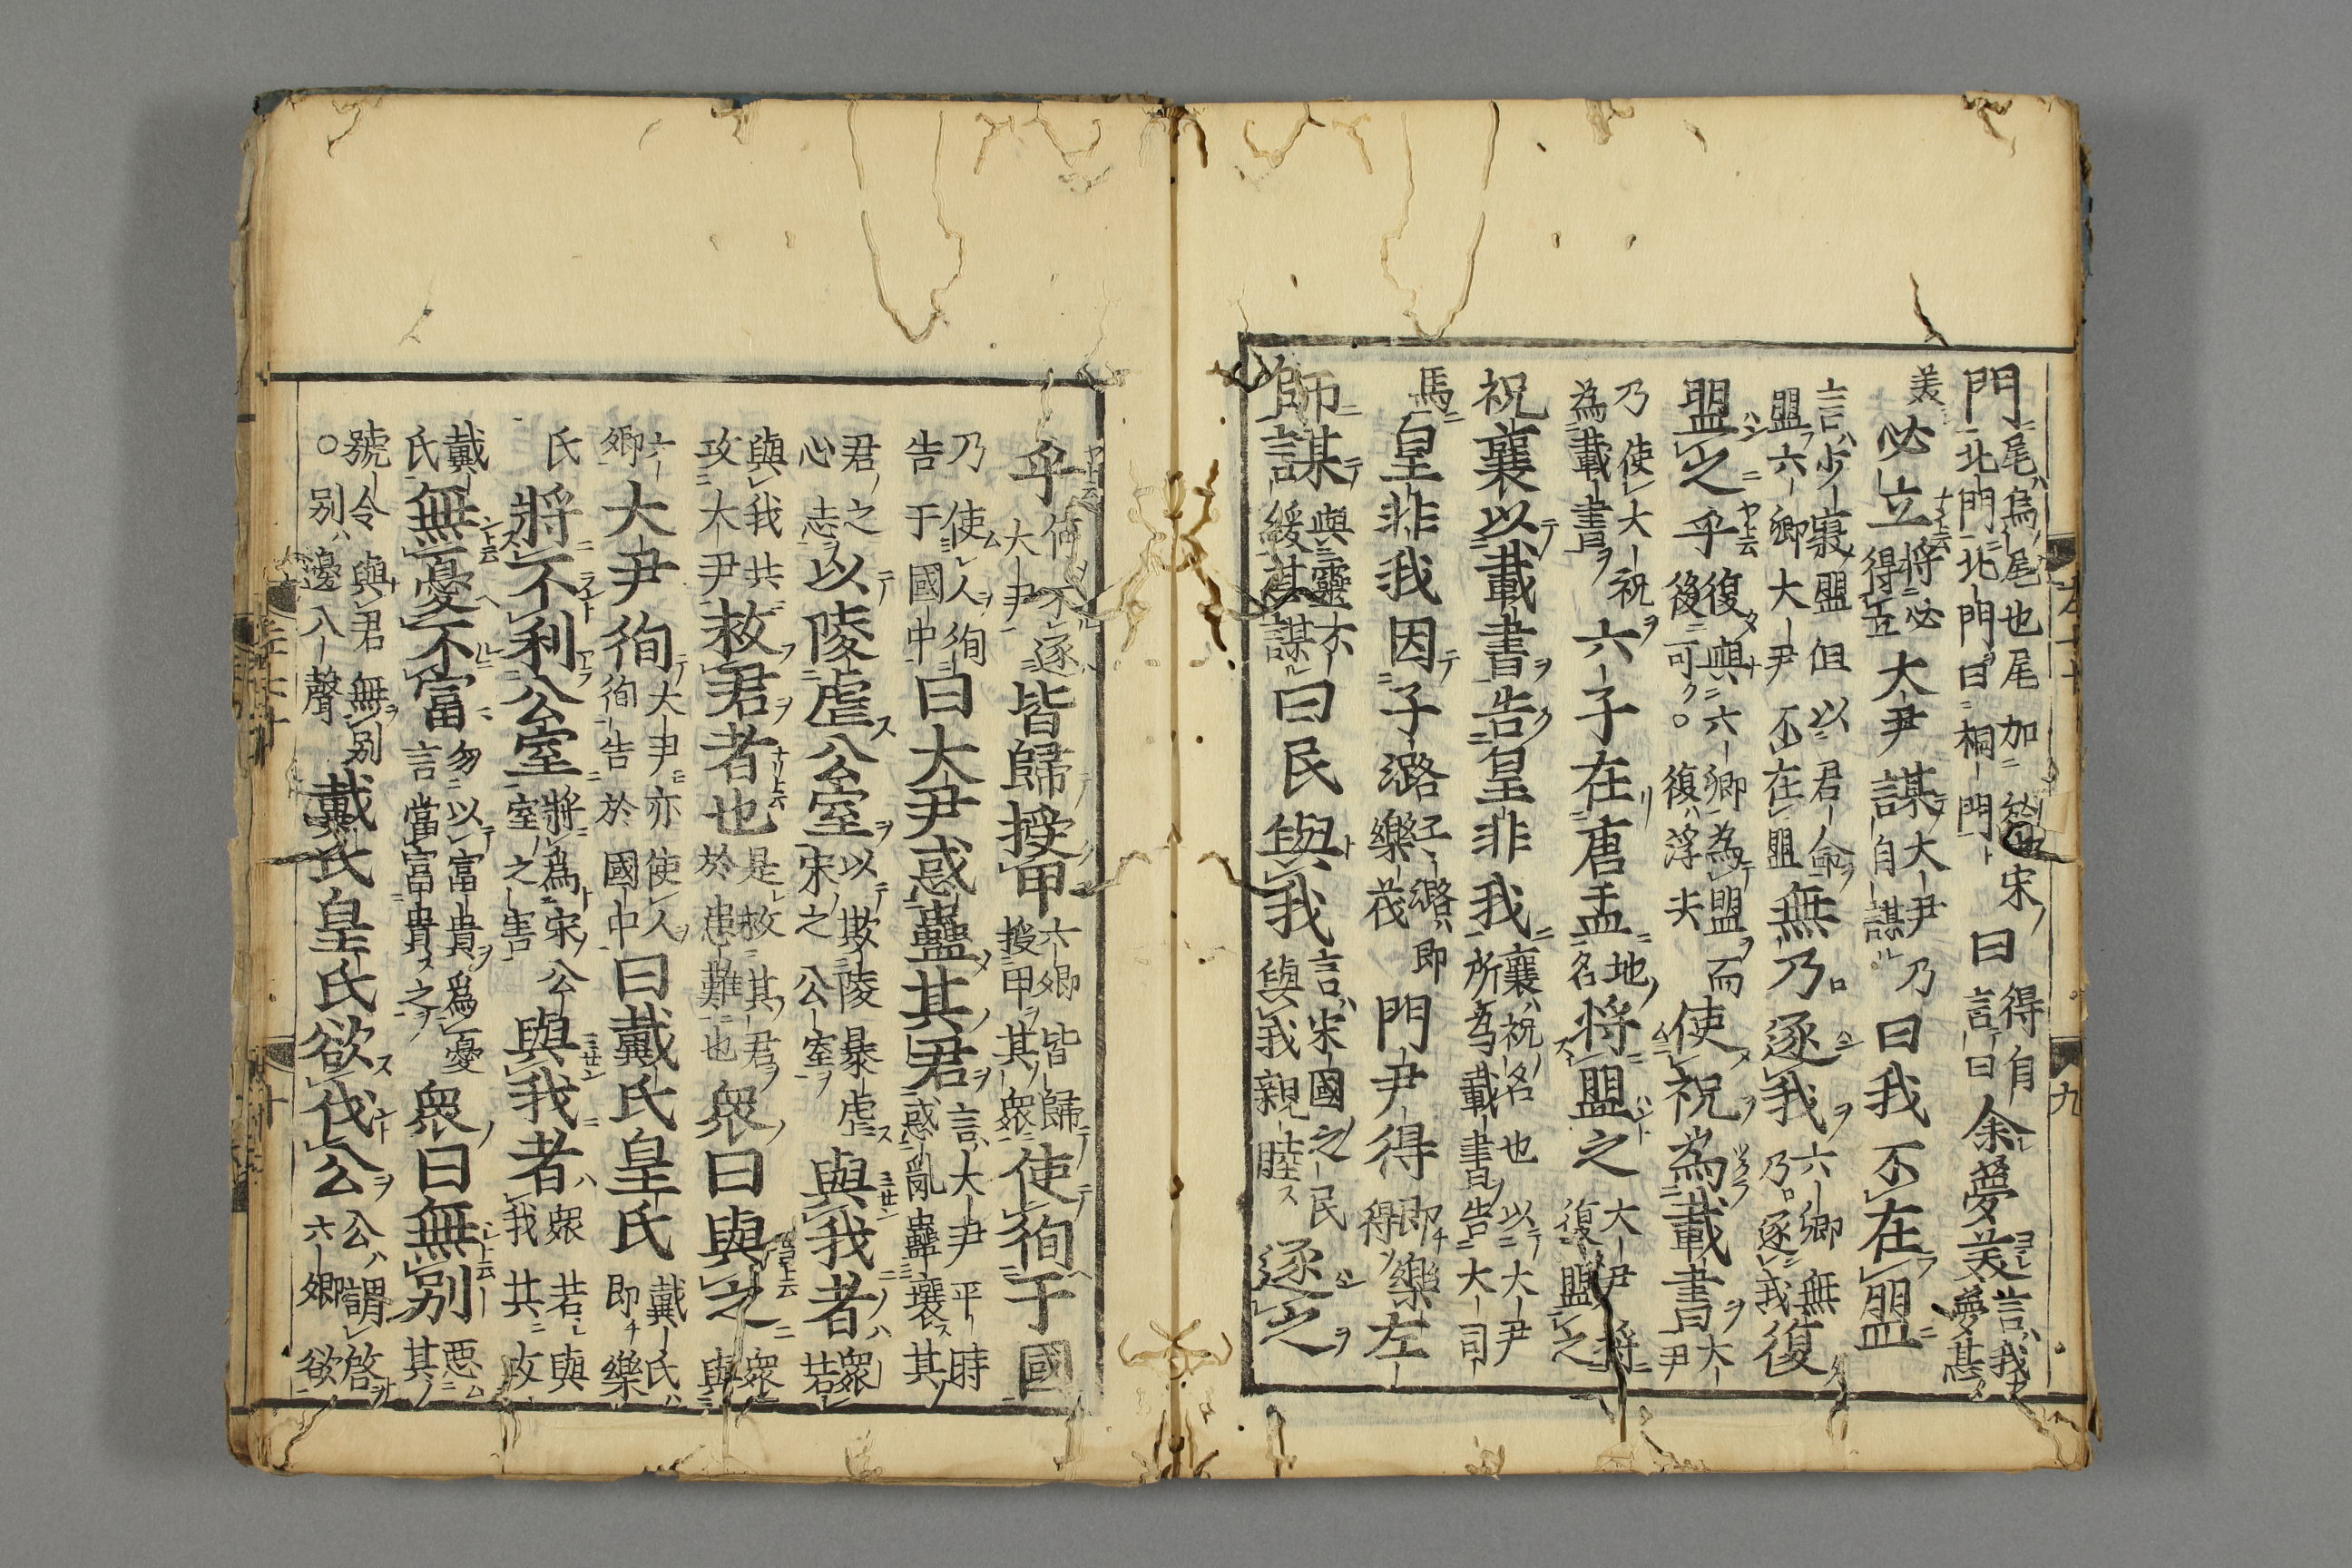 門尾烏尾也尾加於宋北門北門曰桐門曰得自言曰余夢美言我夢甚
美必立將必得立大尹謀大尹乃自謀曰我不在盟
言少寢盟但以君命盟六卿大尹不在盟無乃逐我六卿無乃逐我復
盟之乎復與六卿為盟而後可○復浮夫使祝為載書大尹
乃使大祝為載書六子在唐盂地名將盟之大尹將復盟之
祝襄以載書告皇非我襄祝名也以大尹所為載書告大司
馬皇非我因子潞子潞即樂茷門尹得即樂得左
師謀與靈不緩其謀曰民與我言宋國之民與我親睦逐之
乎何不逐大尹皆歸授甲六卿皆歸授甲其衆使徇于國
乃使人徇告于國中曰大尹惑蠱其君言大尹平時惑亂蠱壞其
君之心志以陵虐公室以欺陵暴虐宋之公室與我者衆若
與我共攻大尹救君者也是救其君於患難也衆曰與之衆與
六卿大尹徇大尹亦使人徇告於國中曰戴氏皇氏戴氏即樂
氏將不利公室將爲宋公室之害與我者衆若與我共攻
戴氏無憂不富勿以富貴爲憂言當富貴之衆曰無别惡其
號令與君無别○别邊入聲戴氏皇氏欲伐公公謂啓六卿欲